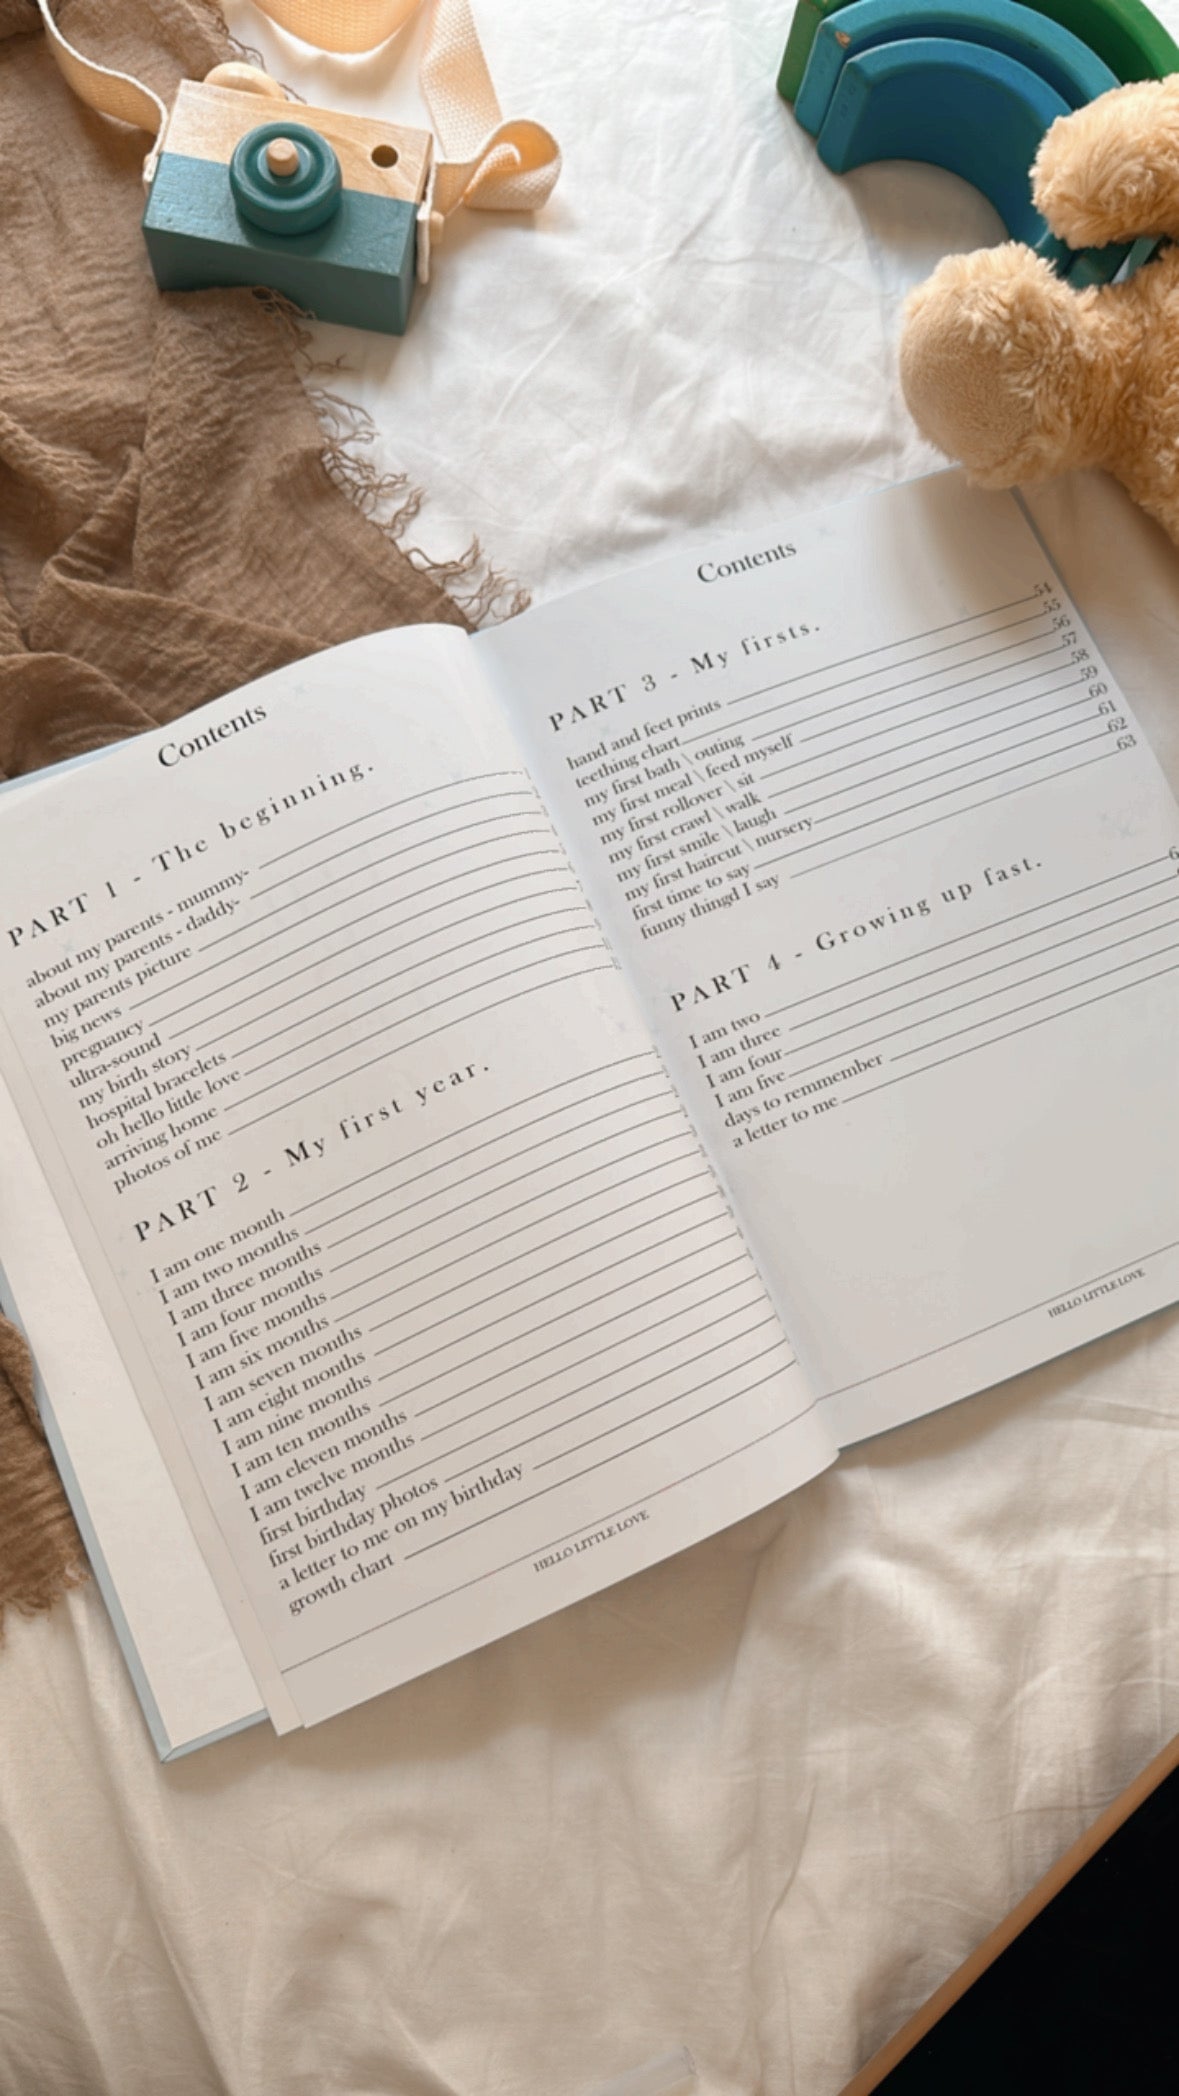 Contents
PART 1 - The beginning.
about my parents - mummy-
about my parents - daddy-
my parents picture
big news
pregnancy
ultra-sound
my birth story
hospital bracelets
oh hello little love
arriving home
photos of me
PART 2 - My first year.
I am one month
I am two months
I am three months
I am four months
I am five months
I am six months
I am seven months
I am eight months
I am nine months
I am ten months
I am eleven months
I am twelve months
first birthday
first birthday photos
a letter to me on my birthday
growth chart
HELLO LITTLE LOVE
Contents
PART 3 - My firsts.
hand and feet prints 54
teething chart 55
my first bath \ outing 56
my first meal \ feed myself 57
my first rollover \ sit 58
my first crawl \ walk 59
my first smile \ laugh 60
my first haircut \ nursery 61
first time to say 62
funny thingd I say 63
PART 4 - Growing up fast.
I am two
I am three
I am four
I am five
days to remmember
a letter to me
HELLO LITTLE LOVE